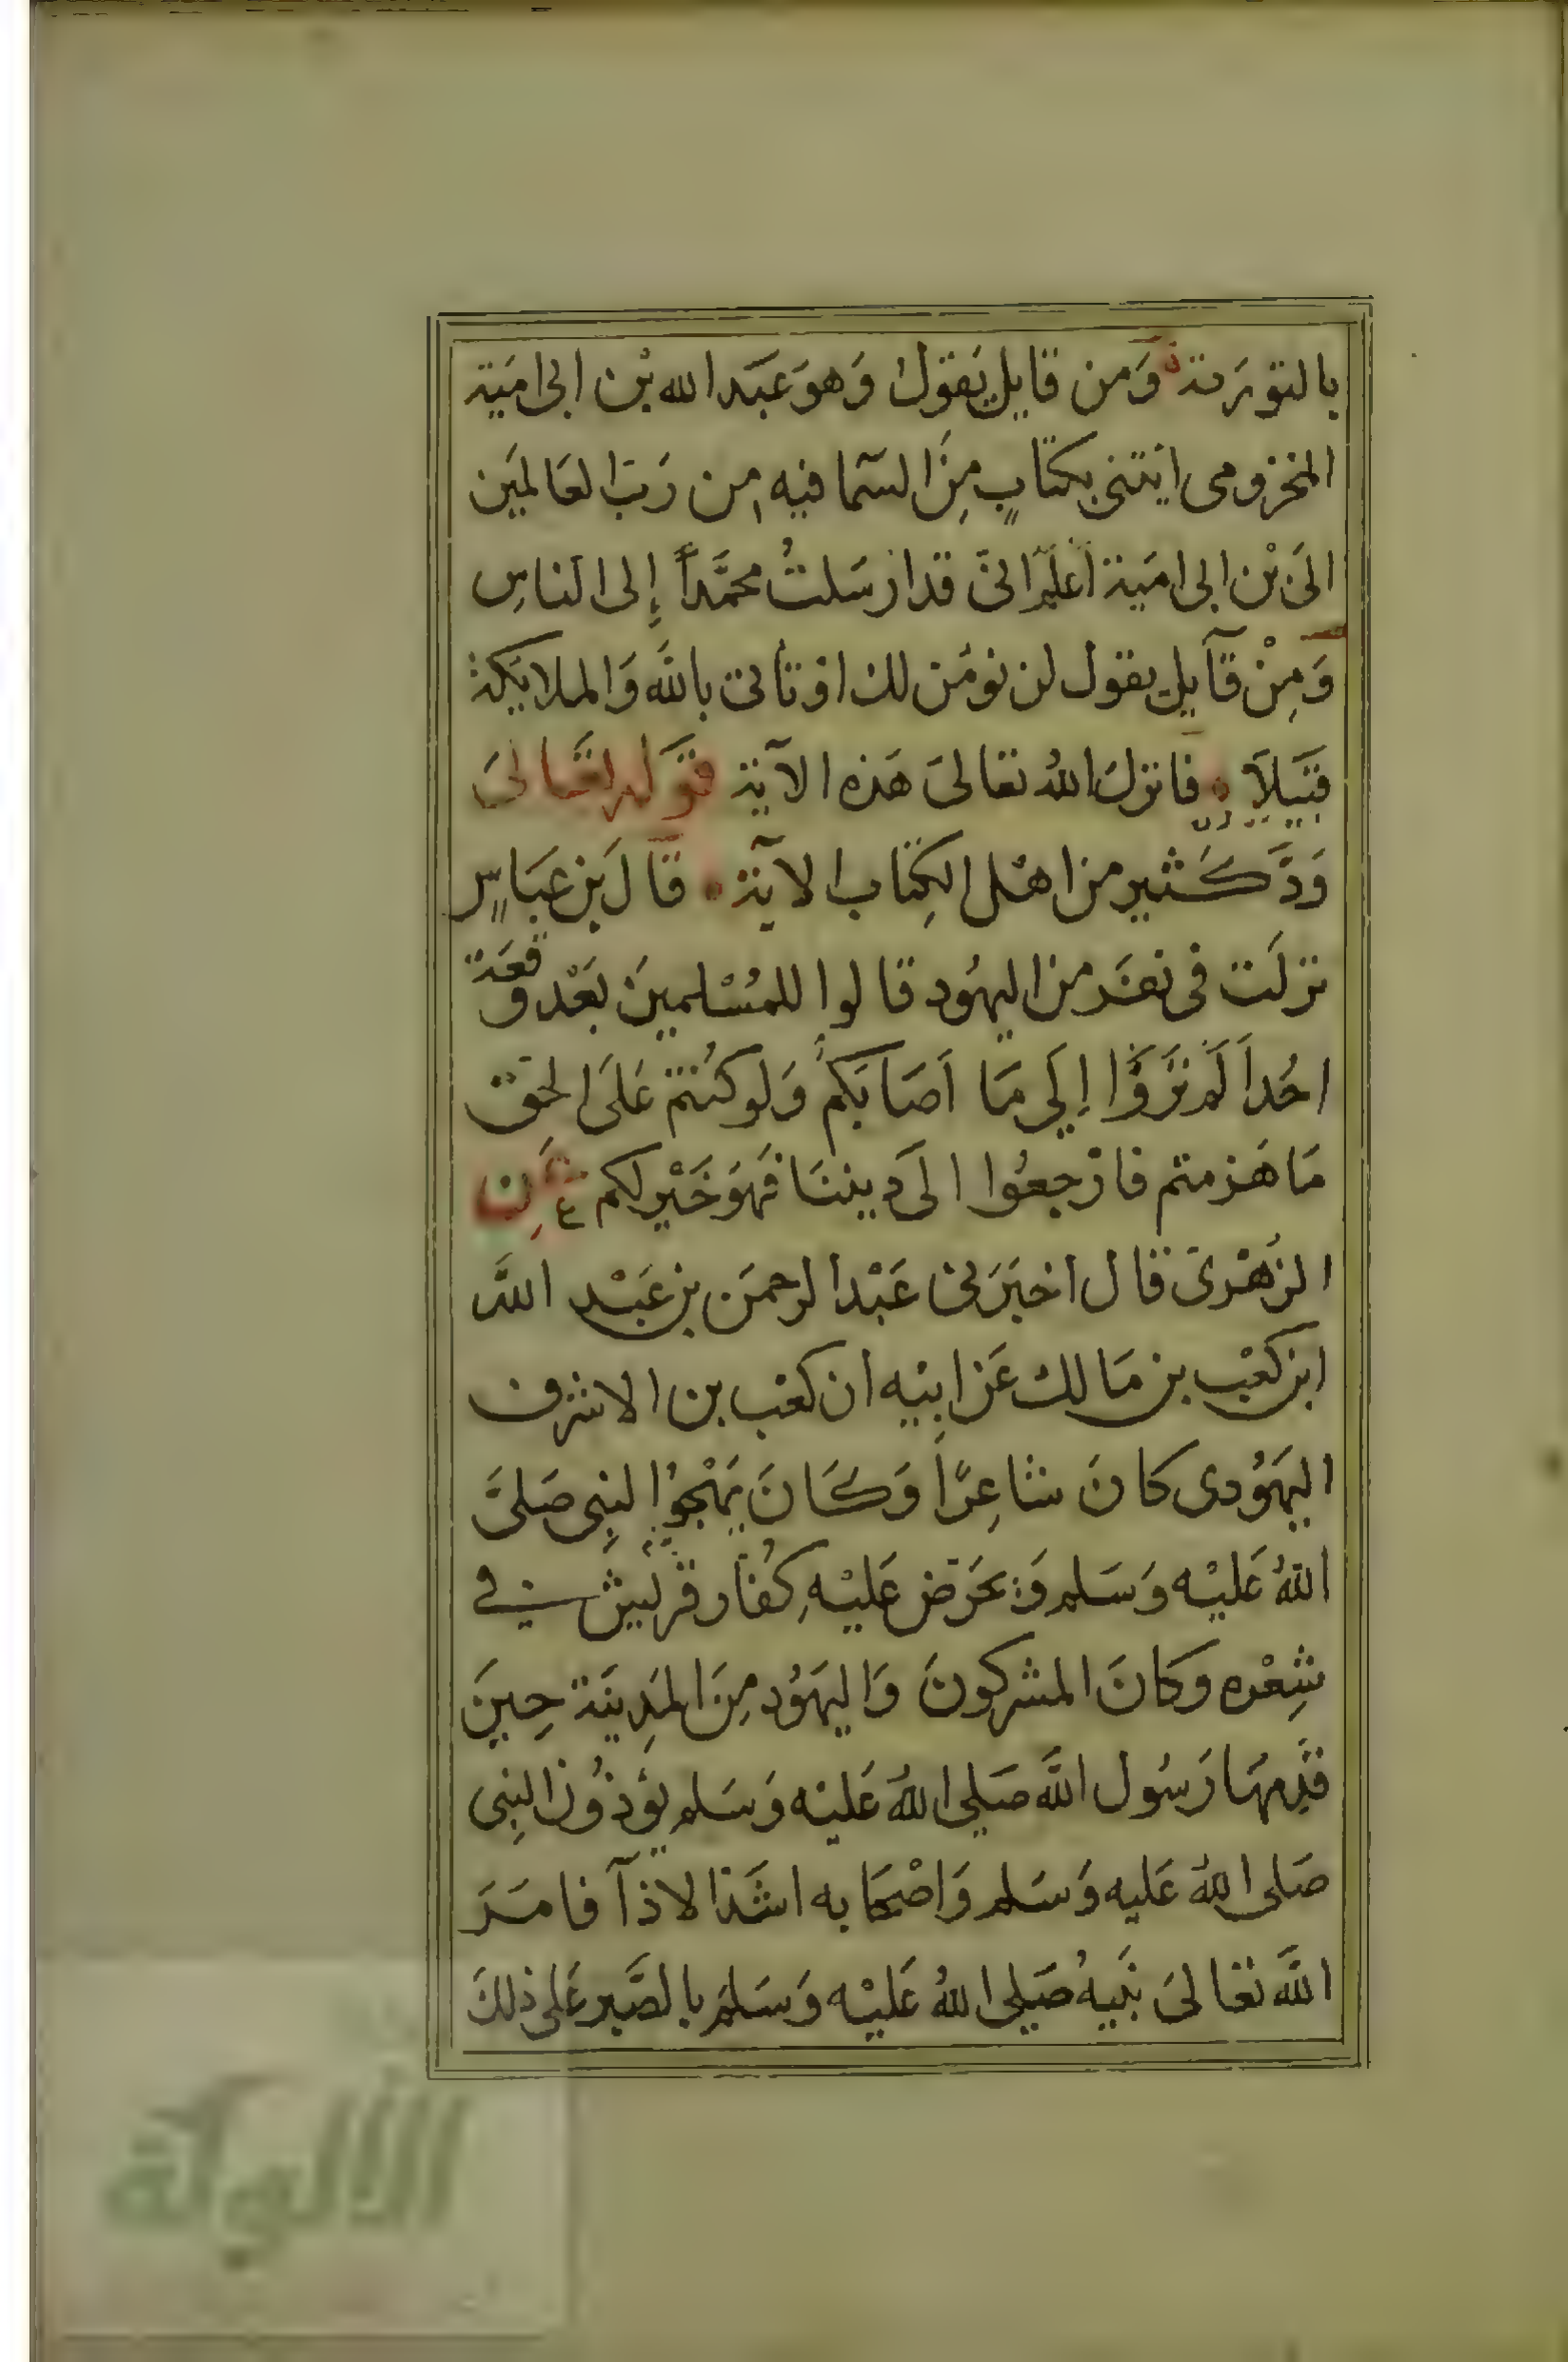 بالتوريۃ وَمن قايل يَقول وَهوَ عبَد الله بْن ابى امَية
المخزومى ايتنى بكتابٍ مِنَ السّما فيه من رَبّ العَالمَين
الىَ بْن ابى امَية اعلم انىّ قد ارسَلتُ محمَّداً إِلى الناسِ
وَمِنْ قآيل يقول لن نومَن لك او تأتى باللَّه وَالملايَكة
قبَيلاَ فانزل اللهُ تعالىَ هَذه الآية قوَله تعَالىَ
وَدَّ كَثير من اهْل الكِتاب الآية قاَلَ بن عبَاسٍ
نزلَت فى نفَر من اليهُود قالوا للمُسْلمينَ بَعْد وقعَة
احُد اَلَم تَرَوَّا إِلَي مَا اَصَابَكمُ وَلو كُنتم عَلىَ الحق
مَا هَزمتم فارْجعُوا الىَ ديننَا فَهوَ خَيْر لكم عَن
الزُهْرىّ قال اخبَرَنى عَبْد الرحمَن بن عَبْد اللَّه
ابن كعْب بن مَالك عَن ابِيْه ان كعْب بن الاشرف
اليهَوُدى كانَ شاعِرّاً وَكَانَ يَهْجوُا لنبِى صَلىَّ
اللهُ عَليْه وَسَلم وَيحَرّض عَليْهِ كُفار قرَيش فى
شِعْره وَكانَ المشركونَ وَاليهَوُد مِنَ المَدِينَة حِينَ
قَدِمهَا رَسوُل اللَّه صَلي اللهُ عَليْه وَسَلم يؤذوُن النبِى
صَلى اللهُ عَليه وَسَلم وَاصْحَابه اشَدّ الاذآ فامَرَ
اللَّه تعَالىَ نَبيهُ صَلي اللهُ عَليْه وَسَلمَ بالصَّبر عَلى ذلكَ
الألوكة